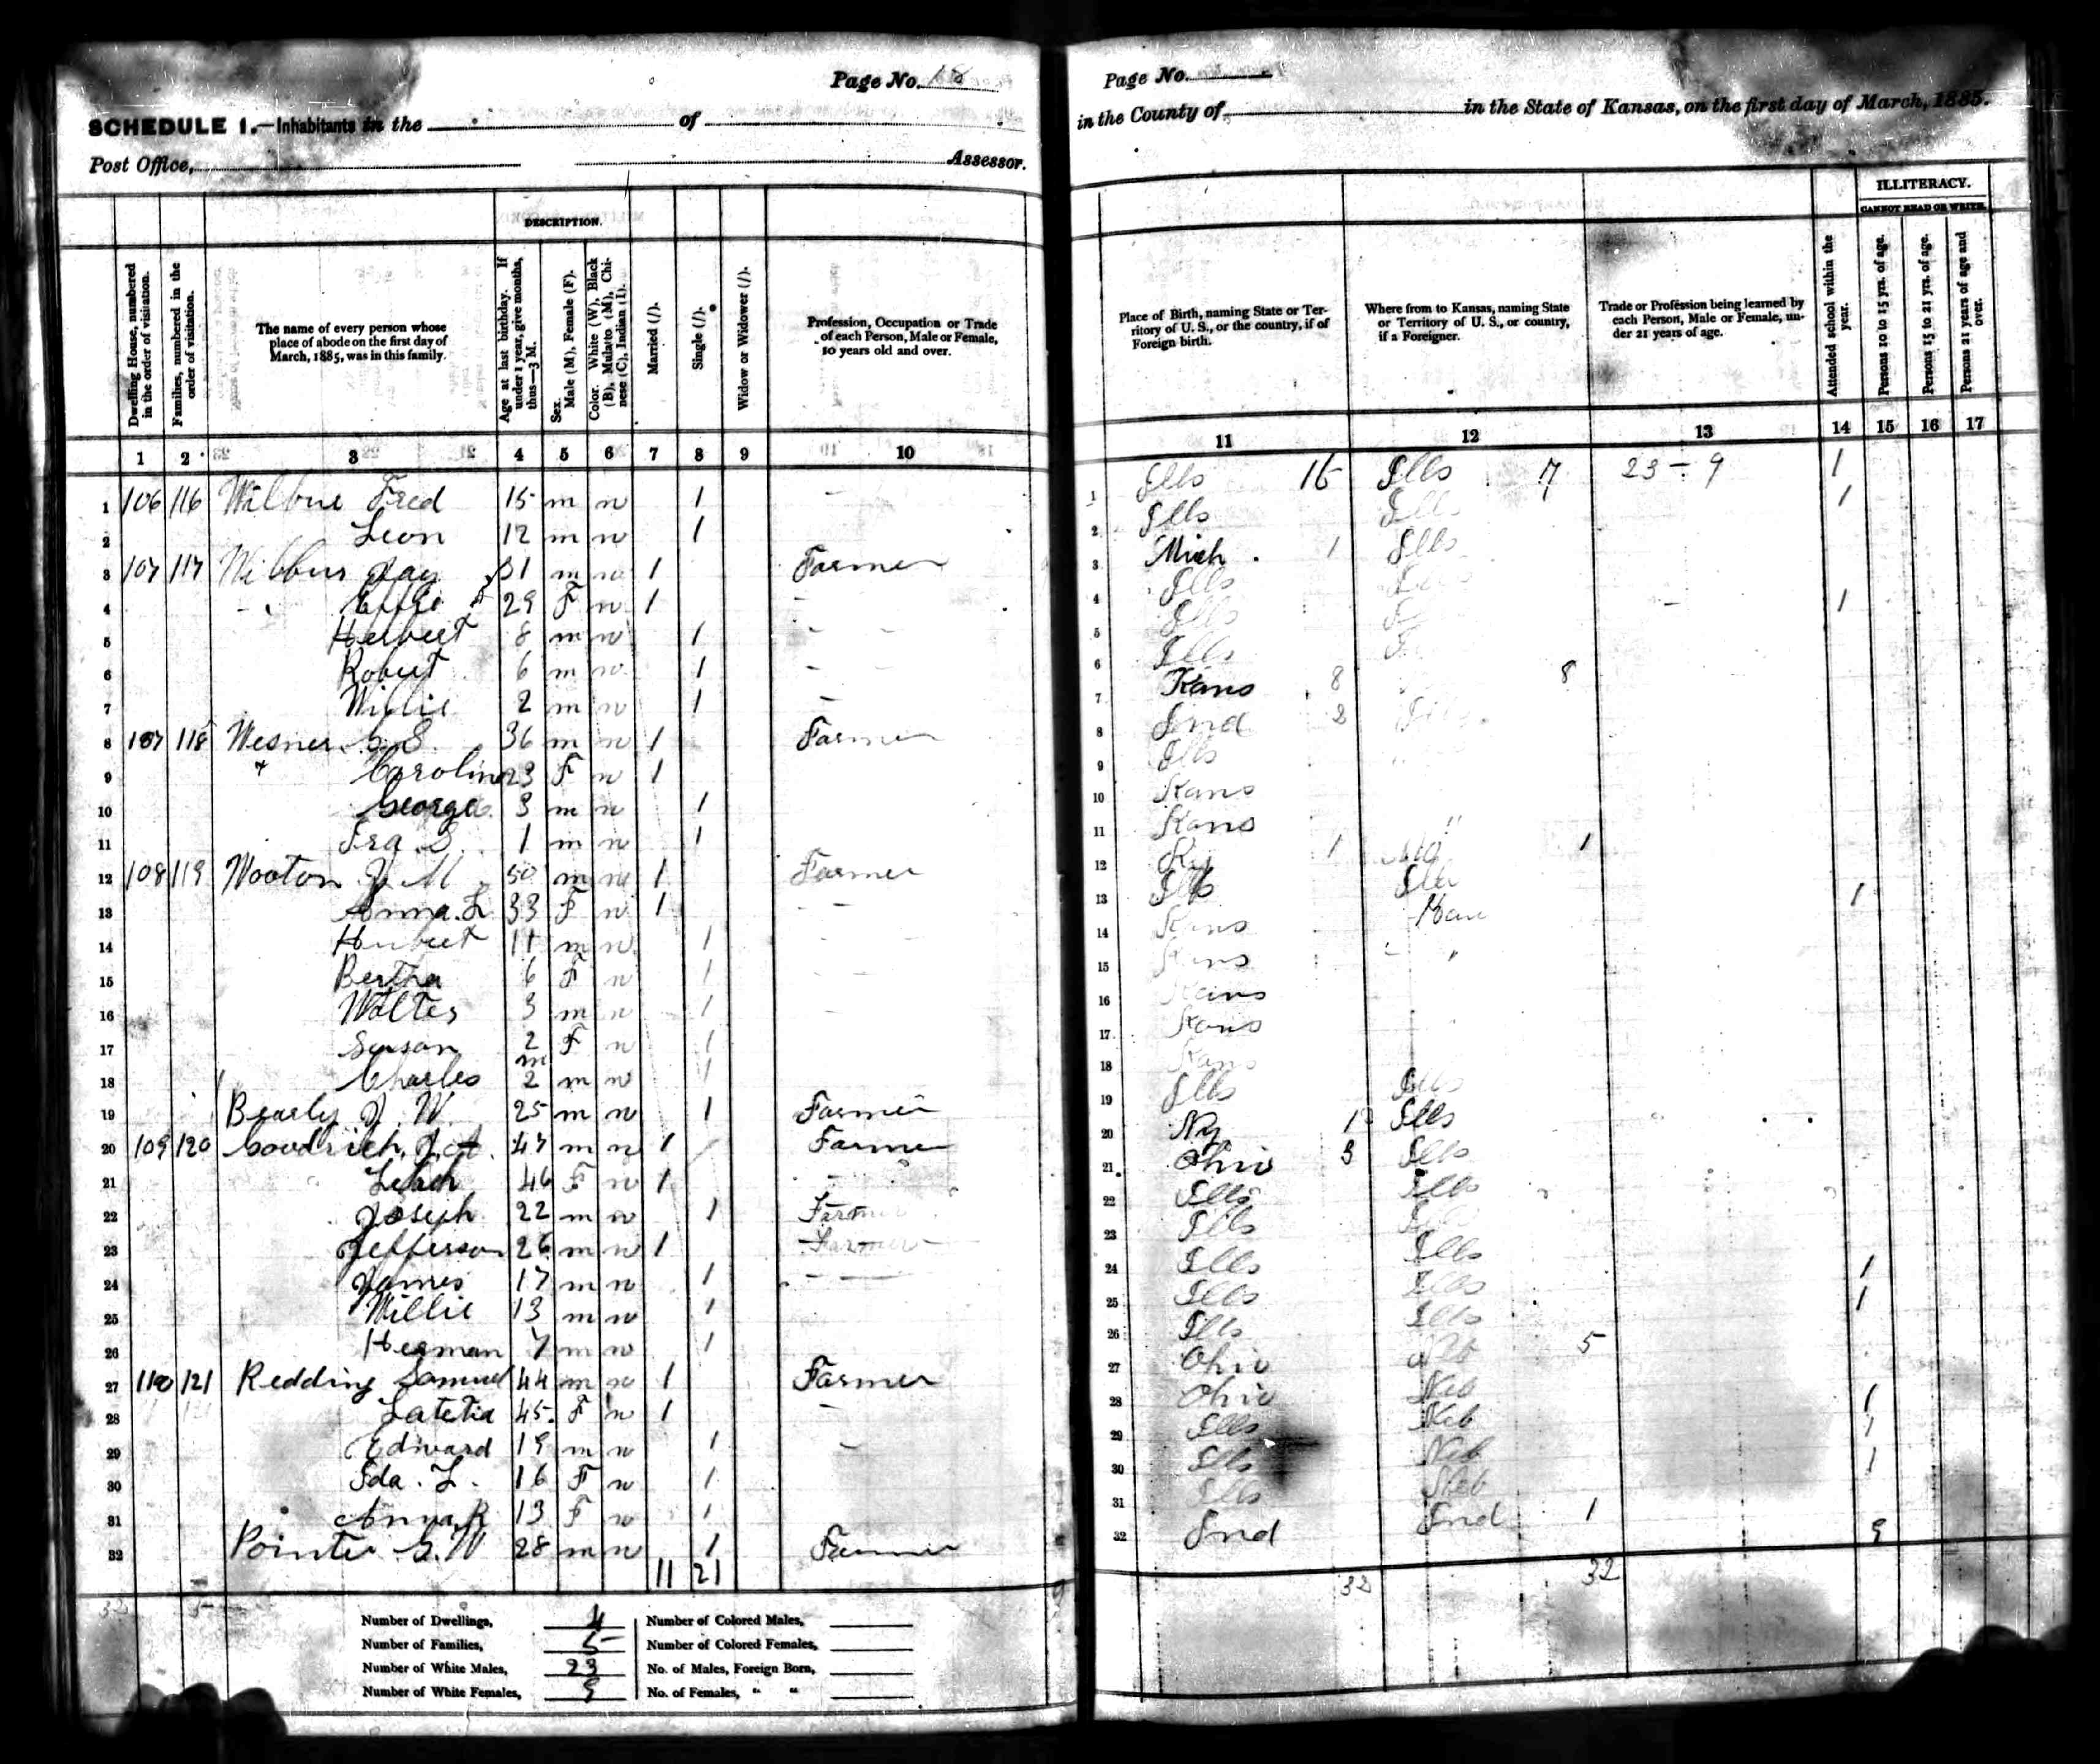 Page No. 18
SCHEDULE 1.—Inhabitants in the of
Post Office, Assessor.
DESCRIPTION.
Dwelling House, numbered in the order of visitation.
Families, numbered in the order of visitation.
The name of every person whose place of abode on the first day of March, 1885, was in this family.
Age at last birthday. If under 1 year, give months, thus—3 M.
Sex. Male (M), Female (F).
Color. White (W), Black (B), Mulatto (M), Chinese (C), Indian (I).
Married (/).
Single (/).
Widow or Widower (/).
Profession, Occupation or Trade of each Person, Male or Female, 10 years old and over.
1 2 3 4 5 6 7 8 9 10
1 106 116 Wilbur Fred 15 m w 1 -
2 Leon 12 m w 1
3 107 117 Wilbur Jay 31 m w 1 Farmer
4 Effie 29 F w 1 -
5 Herbert 8 m w 1 - -
6 Robert 6 m w 1 - -
7 Willie 2 m w 1 -
8 107 118 Wesner S. 36 m w 1 Farmer
9 " Caroline 23 F w 1
10 George 3 m w 1
11 Ira S. 1 m w 1
12 108 119 Wooton J. M 50 m w 1 Farmer
13 Anna. L 33 F w 1 - -
14 Hubert 11 m w 1 -
15 Bertha 6 F w 1
16 Walter 3 m w 1
17 Susan 2 F w 1
18 Charles m 2 m w 1
19 Bearly J. W. 25 m w 1 Farmer
20 109 120 Goodrich. J. A. 47 m w 1 Farmer
21 Leach 46 F w 1 -
22 Joseph 22 m w 1 Farmer
23 Jefferson 26 m w 1 Farmer
24 James 17 m w 1 -
25 Willie 13 m w 1
26 Herman 7 m w 1
27 110 121 Redding Samuel 44 m w 1 Farmer
28 Latetia 45 F w 1 -
29 Edward 19 m w 1 -
30 Ida. L. 16 F w 1
31 Anna. R 13 F w 1
32 Pointer G. W 28 m w 1 Farmer
11 21
32 5
Number of Dwellings, 4
Number of Families, 5
Number of White Males, 23
Number of White Females, 9
Number of Colored Males,
Number of Colored Females,
No. of Males, Foreign Born,
No. of Females, " "
Page No.
in the County of in the State of Kansas, on the first day of March, 1885.
ILLITERACY.
CANNOT READ OR WRITE.
Place of Birth, naming State or Territory of U. S., or the country, if of Foreign birth.
Where from to Kansas, naming State or Territory of U. S., or country, if a Foreigner.
Trade or Profession being learned by each Person, Male or Female, under 21 years of age.
Attended school within the year.
Persons 10 to 15 yrs. of age.
Persons 15 to 21 yrs. of age.
Persons 21 years of age and over.
11 12 13 14 15 16 17
1 Ills Ills 7 23 - 9 1
2 Ills Ills 1
3 Mich 1 Ills
4 Ills
5 Ills 1
6 Ills
7 Kans 8 8
8 Ind 2 Ills
9 Ills
10 Kans
11 Kans "
12 Ky 1 1
13 Ills Ills
14 Kans Kan 1
15 Kans "
16 Kans
17 Kans
18 Kans
19 Ills Ills
20 Ny 1 Ills
21 Ohio 3 Ills
22 Ills Ills
23 Ills Ills
24 Ills Ills 1
25 Ills Ills 1
26 Ills Ills
27 Ohio Neb 5
28 Ohio Neb
29 Ills Neb 1
30 Ills Neb 1
31 Ills Neb 1
32 Ind Ind 1
9
32 32